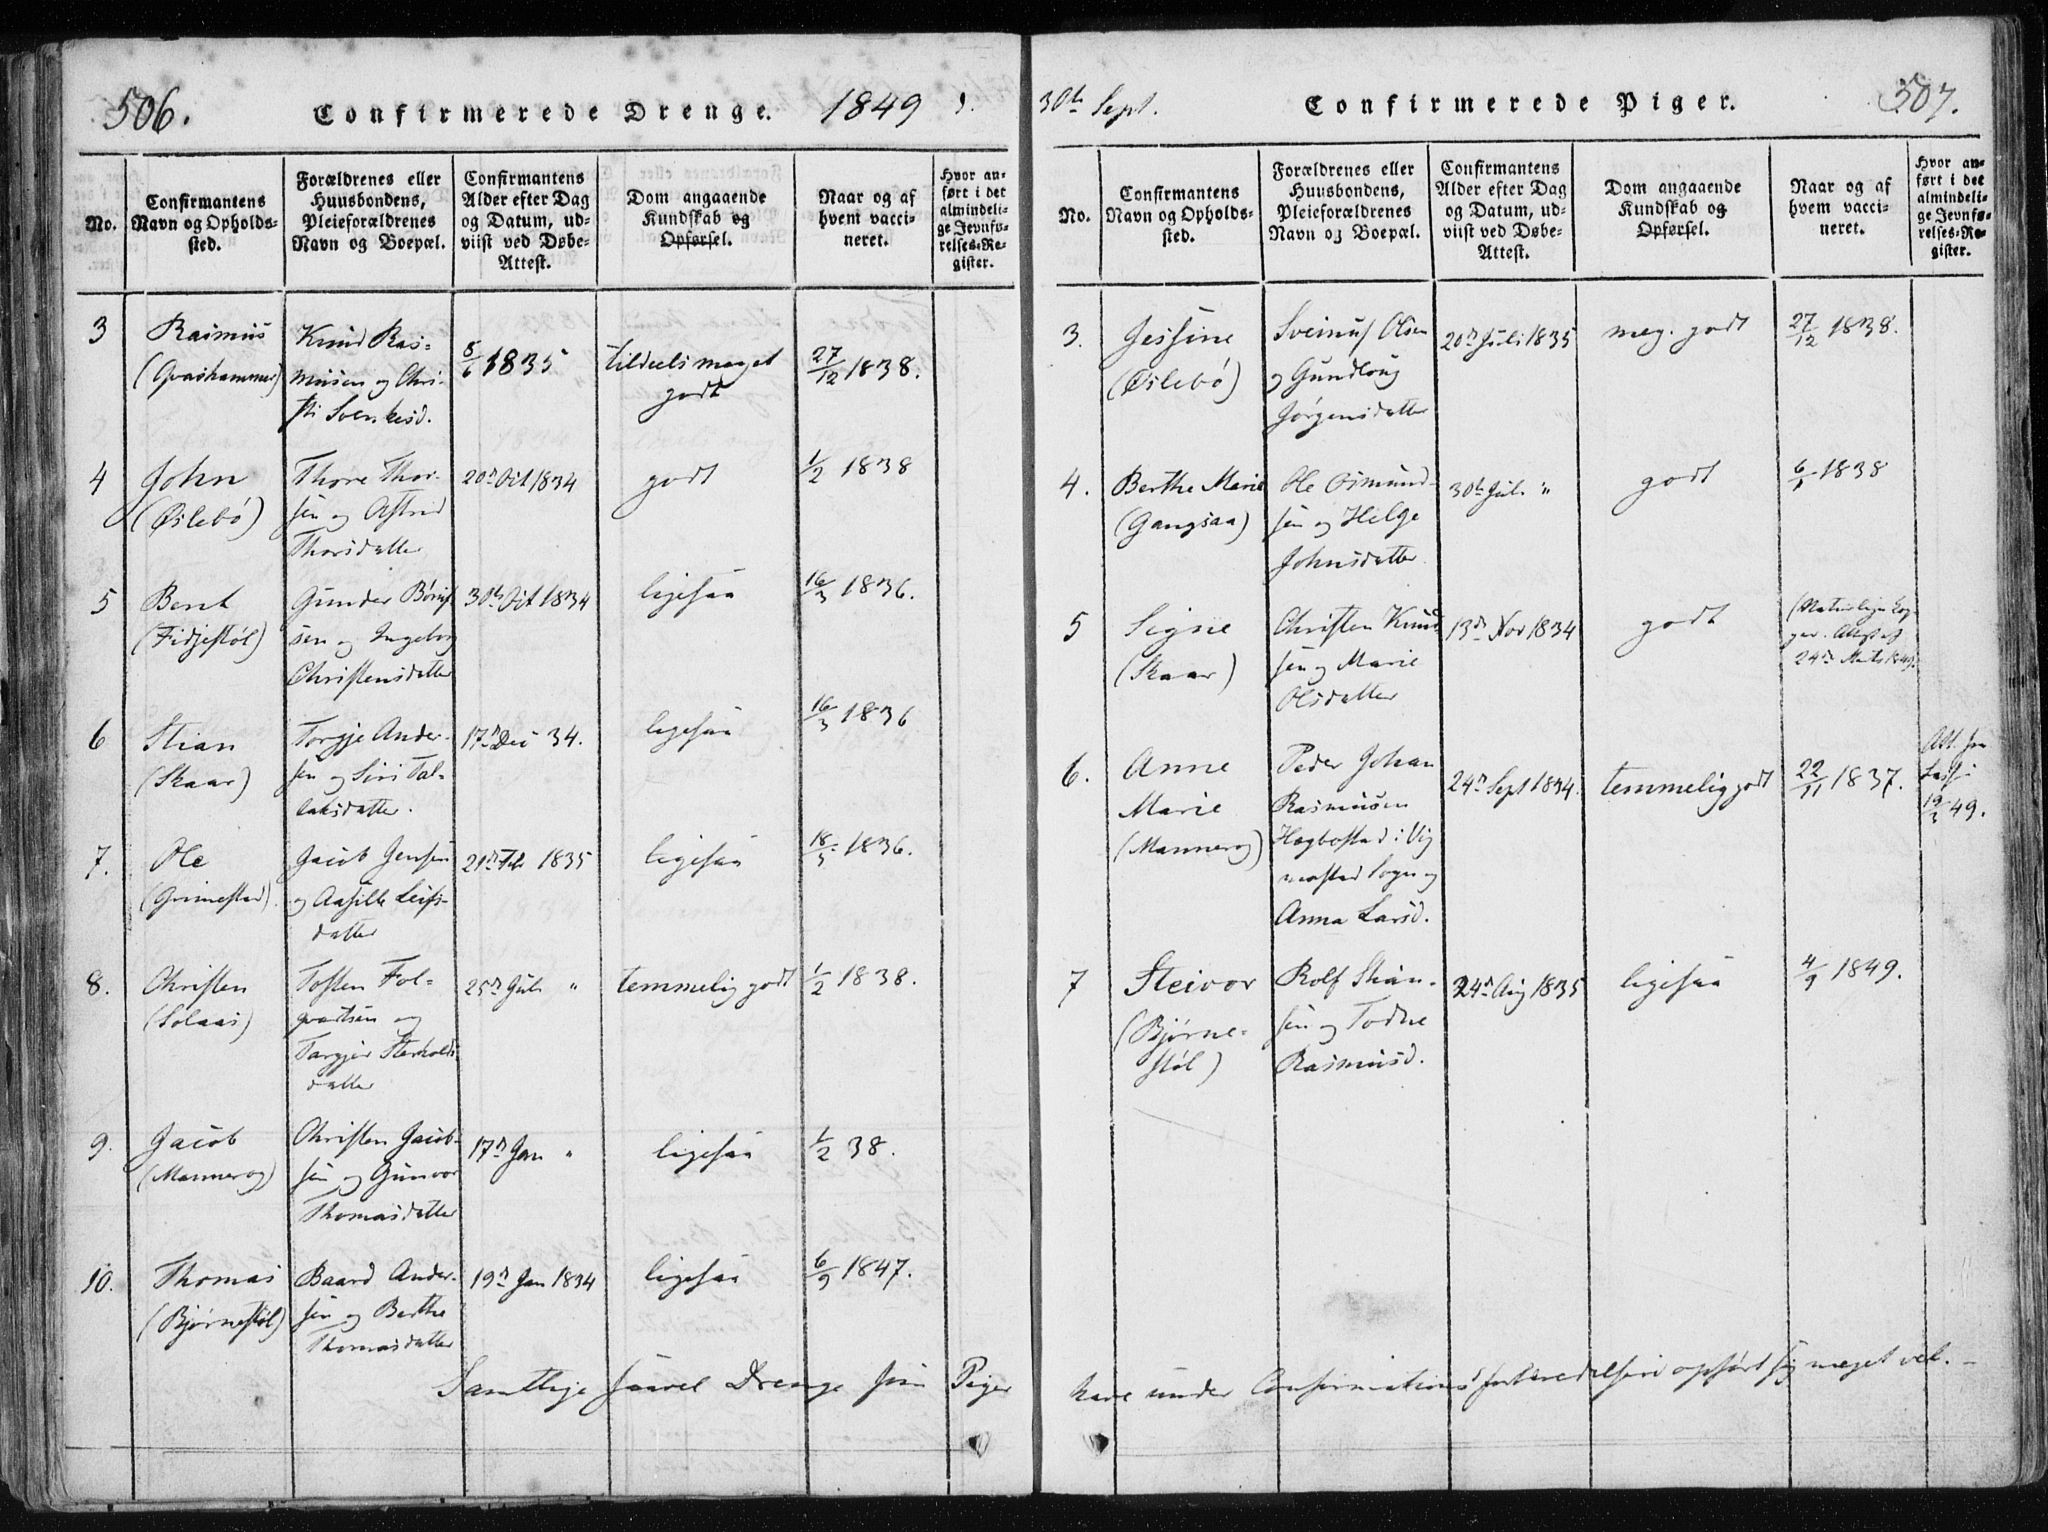 506.
Confirmerede Drenge. 1849
No.
Confirmantens
Navn og Opholds-
sted.
Forældrenes eller
Huusbondens,
Pleieforældrenes
Navn og Boepæl.
Confirmantens
Alder efter Dag
og Datum, ud-
viist ved Døbe-
Attest.
Dom angaaende
Kundskab og
Opførsel.
Naar og af
hvem vacci-
neret.
Hvor an-
ført i det
almindeli-
ge Jevnfø-
relses-Re-
gister.
3
Rasmus
Knud Ras-
musen og Chri-
sti Svenkesd.
8/6 1835
tildeels meget
godt
27/12 1838.
4
John
(Øslebø)
Thore Thor-
sen og Astrid
Thorsdatter
20de Oct 1834
godt
1/2 1838
5
Bent
(Fidjestøl)
Gunder
sen og Ingeborg
Christensdatter
30te Oct 1834
ligesaa
16/3 1836.
6
Stian
(Skaar)
Torgje Ander-
sen og Siri Tal-
laksdatter.
17de Dec 34.
ligesaa
16/3 1836
7.
Ole
(Grimestad).
Jacob Jensen
og
datter
21de Feb 1835
ligesaa
18/3 1836.
8.
Christen
(Solaas)
Tosten Fol-
qvartsen og
datter
25de Juli "
temmelig godt
1/2 1838.
9.
Jacob
(Mannerog)
Christen Jacob-
sen og Gunvor
Thomasdatter
17de Jan "
ligesaa
1/2 38.
10.
Thomas
(Bjørnestøl)
Baard Ander-
sen og Berthe
Thomasdatter
19de Jan 1834
ligesaa
6/9 1847.
Samtlige saavel Drenge som Piger
30te Sept.
Confirmerede Piger.
507.
No.
Confirmantens
Navn og Opholds-
sted.
Forældrenes eller
Huusbondens,
Pleieforældrenes
Navn og Boepæl.
Confirmantens
Alder efter Dag
og Datum, ud-
viist ved Døbe-
Attest.
Dom angaaende
Kundskab og
Opførsel.
Naar og af
hvem vacci-
neret.
Hvor an-
ført i det
almindeli-
ge Jevnfø-
relses-Re-
gister.
3.
Jessine
(Øslebø)
Olsen
og Gundloug
Jørgensdatter
20de Juli 1835
meg. godt
27/12 1838.
4.
Berthe Marie
(Gangsaa)
Ole Osmund-
sen og Helge
Johnsdatter
30te Juli "
godt
6/1 1838
5
Signe
(Skaar)
Christen Knud
sen og Marie
Olsdatter
13de Nov 1834
godt
24de
6.
Anne
Marie
(Mannerog)
Peder Johan
Rasmusen
Hægbostad i Vig
mostad Sogn og
Anna Larsd.
24de Sept 1834.
temmelig godt
22/11 1837.
49.
7
Steivor
(Bjørne-
støl)
Rolf Stian-
sen og Todne
Rasmusd.
24de Aug 1835
ligesaa
4/9 1849.
have under Confirmationsforberedelsen opført sig meget vel. -